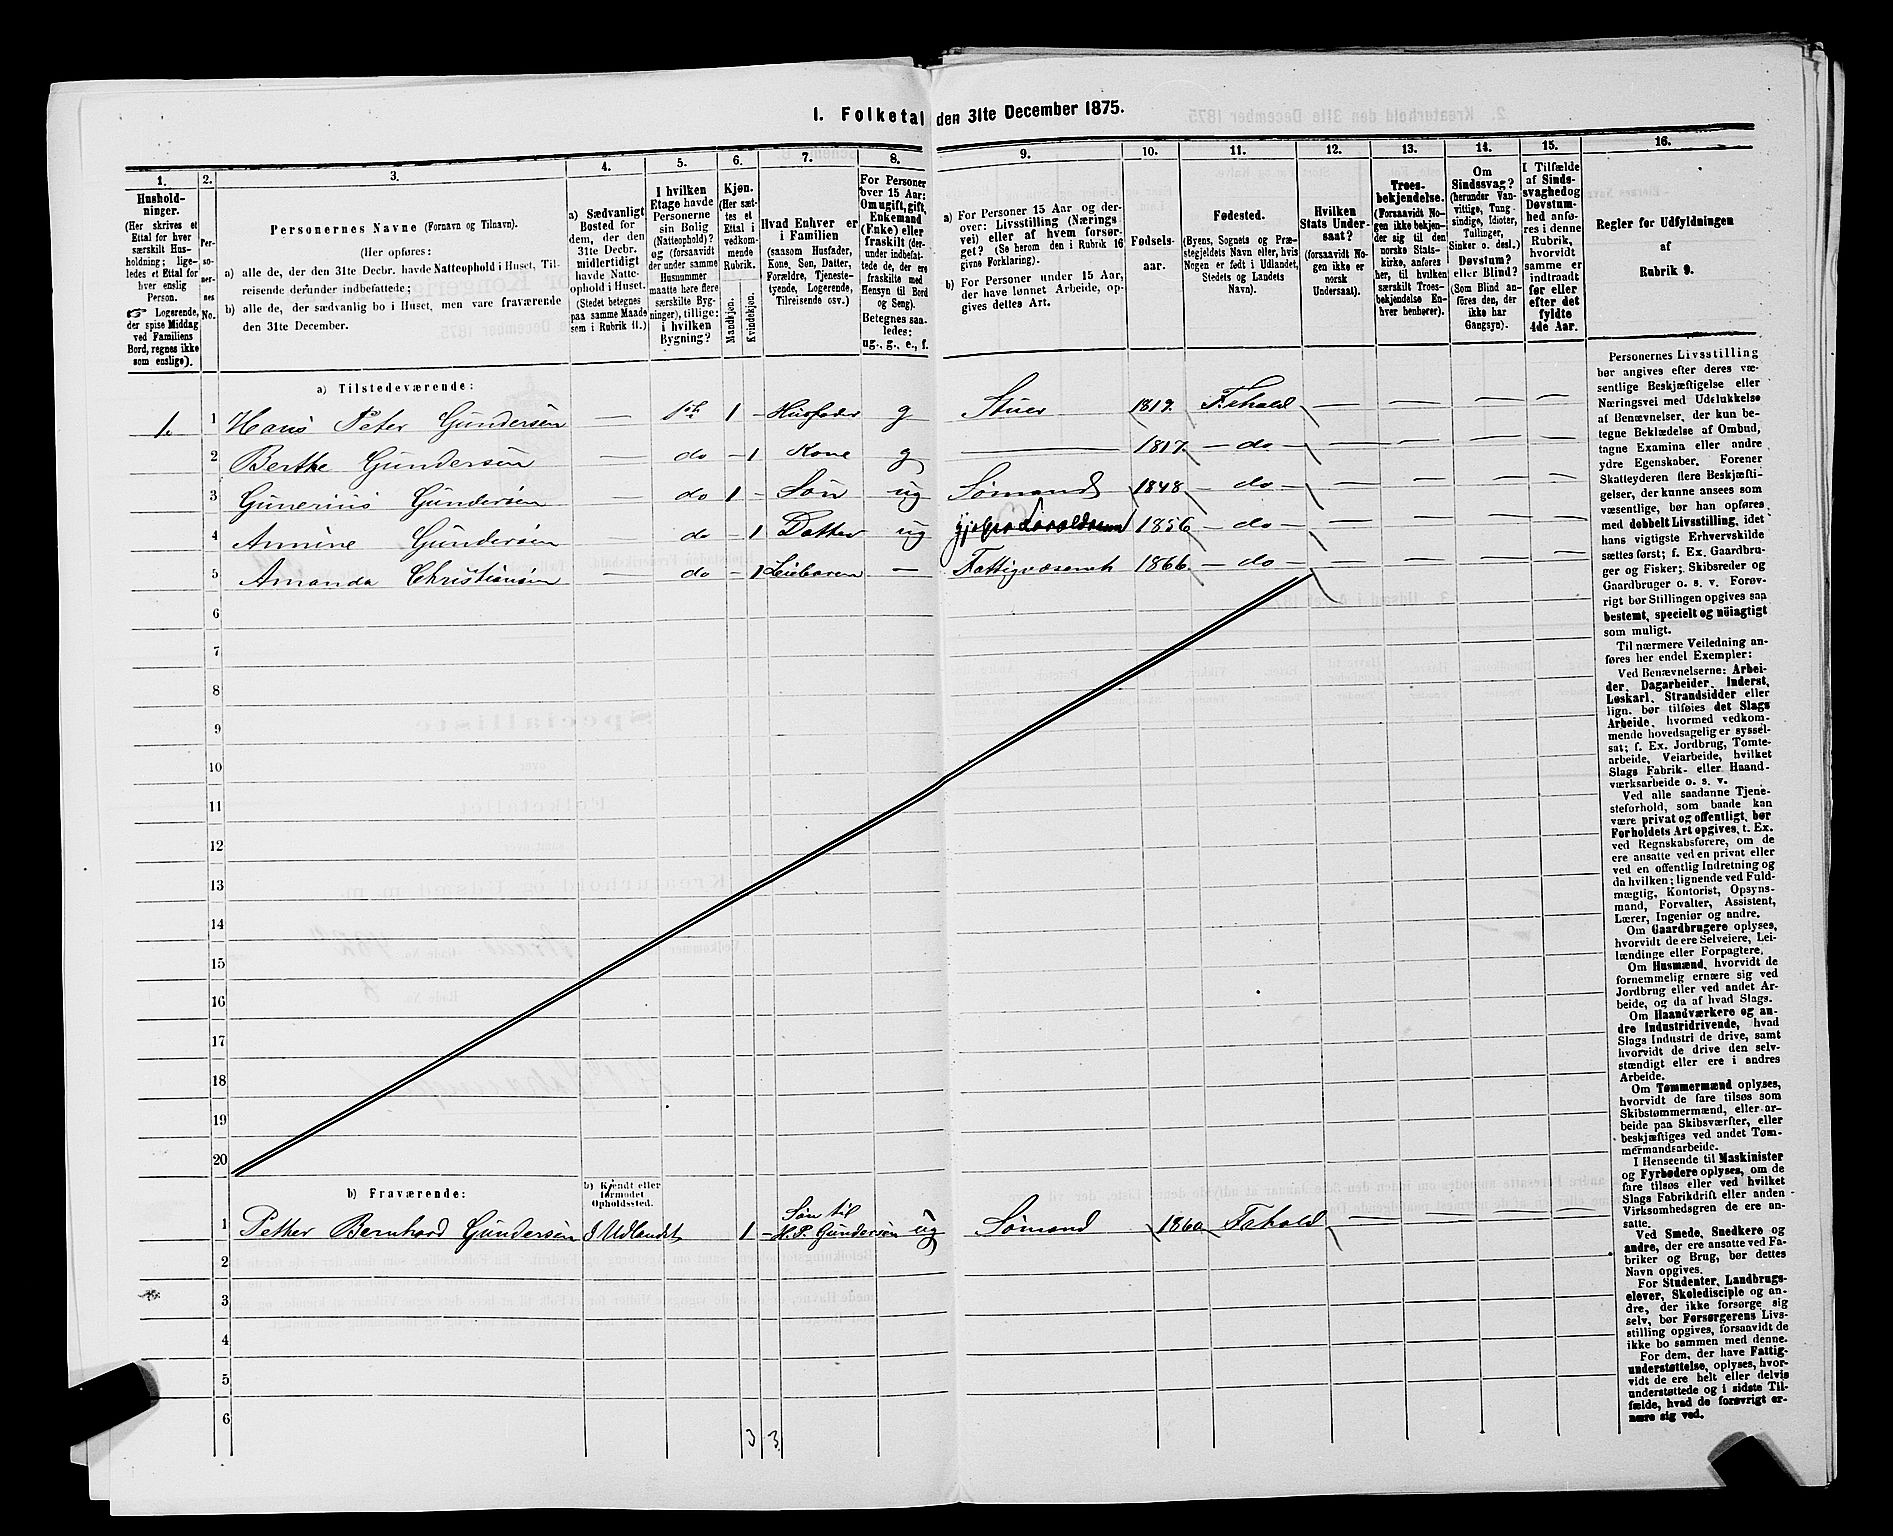 1. Folketal den 31te December 1875.
1.
Hushold-
ninger.
(Her skrives et
Ettal for hver
særskilt Hus-
holdning; lige-
ledes et Ettal for
hver enslig
Person.
☞ Logerende,
der spise Middag
ved Familiens
Bord, regnes ikke
som enslige).
2.
Per-
so-
ner-
nes
No.
3.
Personernes Navne (Fornavn og Tilnavn).
(Her opføres:
a) alle de, der den 31te Decbr. havde Natteophold i Huset, Til-
reisende derunder indbefattede;
b) alle de, der sædvanlig bo i Huset, men vare fraværende
den 31te December.
4.
a) Sædvanligt
Bosted for
dem, der den
31te Decbr.
midlertidigt
havde Natte-
ophold i Huset.
(Stedet betegnes
paa samme Maade
som i Rubrik 11.)
5.
I hvilken
Etage havde
Personerne
sin Bolig
(Natteophold)?
og (forsaavidt
der under samme
Husnummer
maatte høre flere
særskilte Byg-
ninger), tillige:
i hvilken
Bygning?
6.
Kjøn.
(Her sæt-
tes et
Ettal i
vedkom-
mende
Rubrik.
Mandkjøn.
Kvindekjøn.
7.
Hvad Enhver er
i Familien
(saasom Husfader,
Kone, Søn, Datter,
Forældre, Tjeneste-
tyende, Logerende,
Tilreisende osv.)
8.
For Personer
over 15 Aar:
Om ugift, gift,
Enkemand
(Enke) eller
fraskilt (der-
under indbefat-
tede de, der ere
fraskilte med
Hensyn til Bord
og Seng).
Betegnes saa-
ledes:
ug., g., e., f.
9.
a) For Personer 15 Aar og der-
over: Livsstilling (Nærings
vei) eller af hvem forsør-
get? (Se herom den i Rubrik 16
givne Forklaring).
b) For Personer under 15 Aar,
der have lønnet Arbeide, op-
gives dettes Art.
10.
Fødsels-
aar.
11.
Fødested.
(Byens, Sognets og Præ-
stegjeldets Navn eller, hvis
Nogen er født i Udlandet,
Stedets og Landets
Navn).
12.
Hvilken
Stats Under-
saat?
(forsaavidt No-
gen ikke er
norsk
Undersaat).
13.
Troes-
bekjendelse.
(Forsaavidt No-
gen ikke bekjen-
der sig til den
norske Stats-
kirke, anføres
her, til hvilken
særskilt Troes-
bekjendelse En-
hver henhører).
14.
Om
Sindssvag?
(herunder Van-
vittige, Tung-
sindige, Idioter,
Tullinger,
Sinker o. desl.)
Døvstum?
eller Blind?
(Som Blind an-
føres den, der
ikke har
Gangsyn).
15.
I Tilfælde
af Sinds-
svaghed og
Døvstum-
hed anfø-
res i denne
Rubrik,
hvorvidt
samme er
indtraadt
før eller
efter det
fyldte
4de Aar.
16.
Regler for Udfyldningen
af
Rubrik 9.
a) Tilstedeværende:
1. 1 Hans Peter Gundersen — 1st 1 - Husfader g Stuer 1817. Frhald — — — —
2 Berthe Gundersen — do - 1 Kone g — 1817. - do - — — — —
3 Gunerius Gundersen — do 1 - Søn ug Sømand 1848. - do - — — — —
4 Annine Gundersen — do - 1 Datter ug 1856 - do - — — — —
5 Amanda Christiansen — do - 1 Leiebaren — Fattigvæsenet 1866. - do - — — — —
6
7
8
9
10
11
12
13
14
15
16
17
18
19
20
b) Fraværende:
b) Kjendt eller
formodet
Opholdssted.
1 Pether Bernhard Gundersen I Udlandet 1 - Søn til
H. P. Gundersen ug Sømand 1860. Frhald — — — —
2
3
4
5
6
3 3.
Personernes Livsstilling
bør angives efter deres væ-
sentlige Beskjæftigelse eller
Næringsvei med Udelukkelse
af Benævnelser, der kun be-
tegne Beklædelse af Ombud,
tagne Examina eller andre
ydre Egenskaber. Forener
Skatteyderen flere Beskjæfti-
gelser, der kunne ansees som
væsentlige, bør han opføres
med dobbelt Livsstilling, idet
hans vigtigste Erhvervskilde
sættes først; f. Ex. Gaardbru-
ger og Fisker; Skibsreder og
Gaardbruger o. s. v. Forøv-
rigt bør Stillingen opgives saa
bestemt, specielt og nöiagtigt
som muligt.
Til nærmere Veiledning an-
føres her endel Exempler:
Ved Benævnelserne: Arbei-
der, Dagarbeider, Inderst,
Løskarl, Strandsidder eller
lign. bør tilføies det Slags
Arbeide, hvormed vedkom-
mende hovedsagelig er syssel-
sat; f. Ex. Jordbrug, Tomte-
arbeide, Veiarbeide, hvilket
Slags Fabrik- eller Haand-
værksarbeide o. s. v.
Ved alle saadanne Tjene-
steforhold, som baade kan
være privat og offentligt, bør
Forholdets Art opgives, t. Ex.
ved Regnskabsførere, om de
ere ansatte ved en privat eller
ved en offentlig Indretning og
da hvilken; lignende ved Fuld-
mægtig, Kontorist, Opsyns-
mand, Forvalter, Assistent,
Lærer, Ingeniør og andre.
Om Gaardbrugere oplyses,
hvorvidt de ere Selveiere, Lei-
lændinge eller Forpagtere.
Om Husmænd, hvorvidt de
fornemmelig ernære sig ved
Jordbrug eller ved andet Ar-
beide, og da af hvad Slags.
Om Haandværkere og an-
dre Industridrivende, hvad
Slags Industri de drive, samt
hvorvidt de drive den selv-
stændigt eller ere i andres
Arbeide.
Om Tømmermænd oplyses,
hvorvidt de fare tilsøs som
Skibstømmermænd, eller ar-
beide paa Skibsværfter, eller
beskjæftiges ved andet Tøm-
mermandsarbeide.
I Henseende til Maskinister
og Fyrbødere oplyses, om de
fare tilsøs eller ved hvilket
Slags Fabrikdrift eller anden
Virksomhedsgren de ere an-
satte.
Ved Smede, Snedkere og
andre, der ere ansatte ved Fa-
briker og Brug, bør dettes
Navn opgives.
For Studenter, Landbrugs-
elever, Skoledisciple og an-
dre, der ikke forsørge sig
selv, bør Forsørgerens Livs-
stilling opgives, forsaavidt de
ikke bo sammen med denne.
For dem, der have Fattig-
understøttelse, oplyses, hvor-
vidt de ere helt eller delvis
understøttede og i sidste Til-
fælde, hvad de forøvrigt er-
nære sig ved.